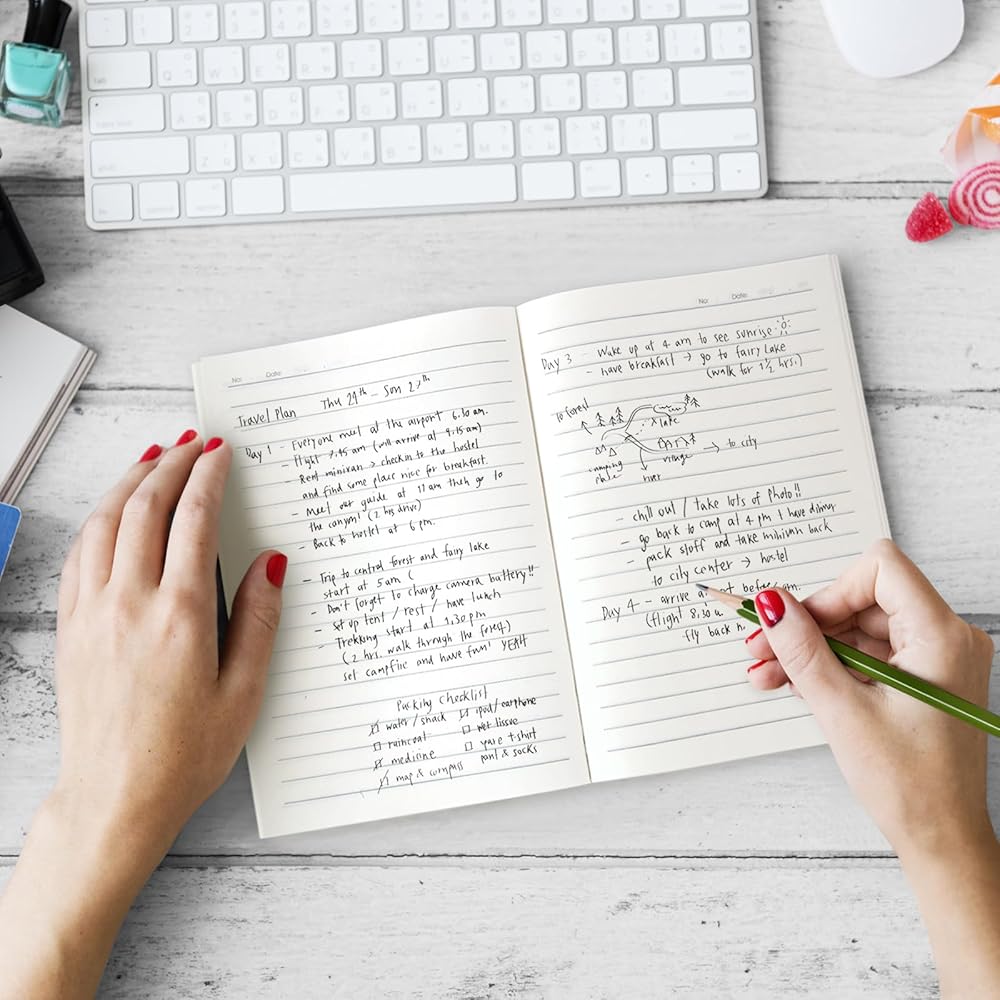 No: Date:
Travel Plan Thu 24th - Sun 27th
Day 1 - Everyone meet at the airport 6.10 am.
- Flight 7.45 am (will arrive at 9.15 am)
- Rent minivan → checkin to the hostel
and find some place nice for breakfast.
- Meet our guide at 11 am then go to
the canyon! (2 hrs drive)
- Back to hostel at 6 pm.
- Trip to central forest and fairy lake
start at 5 am (
- Don't forget to charge camera battery!!
- Set up tent / rest / have lunch
- Trekking start at 1.30 pm
(2 hrs. walk through the forest)
set campfire and have fun! YEAH
Packing checklist
☑ water / snack ☑ ipod / earphone
☐ raincoat ☐ wet tissue
☑ medicine ☐ spare t-shirt
☑ map & compass pant & socks
No: Date:
Day 3 - Wake up at 4 am to see sunrise
- have breakfast → go to fairy Lake
(walk for 1½ hrs.)
To forest
lake
camping village → to city
place river
- chill out / take lots of photo!!
- go back to camp at 4 pm & have dinner
- pack stuff and take minivan back
to city center → hostel
Day 4 - arrive before am.
(flight 8.30
fly back